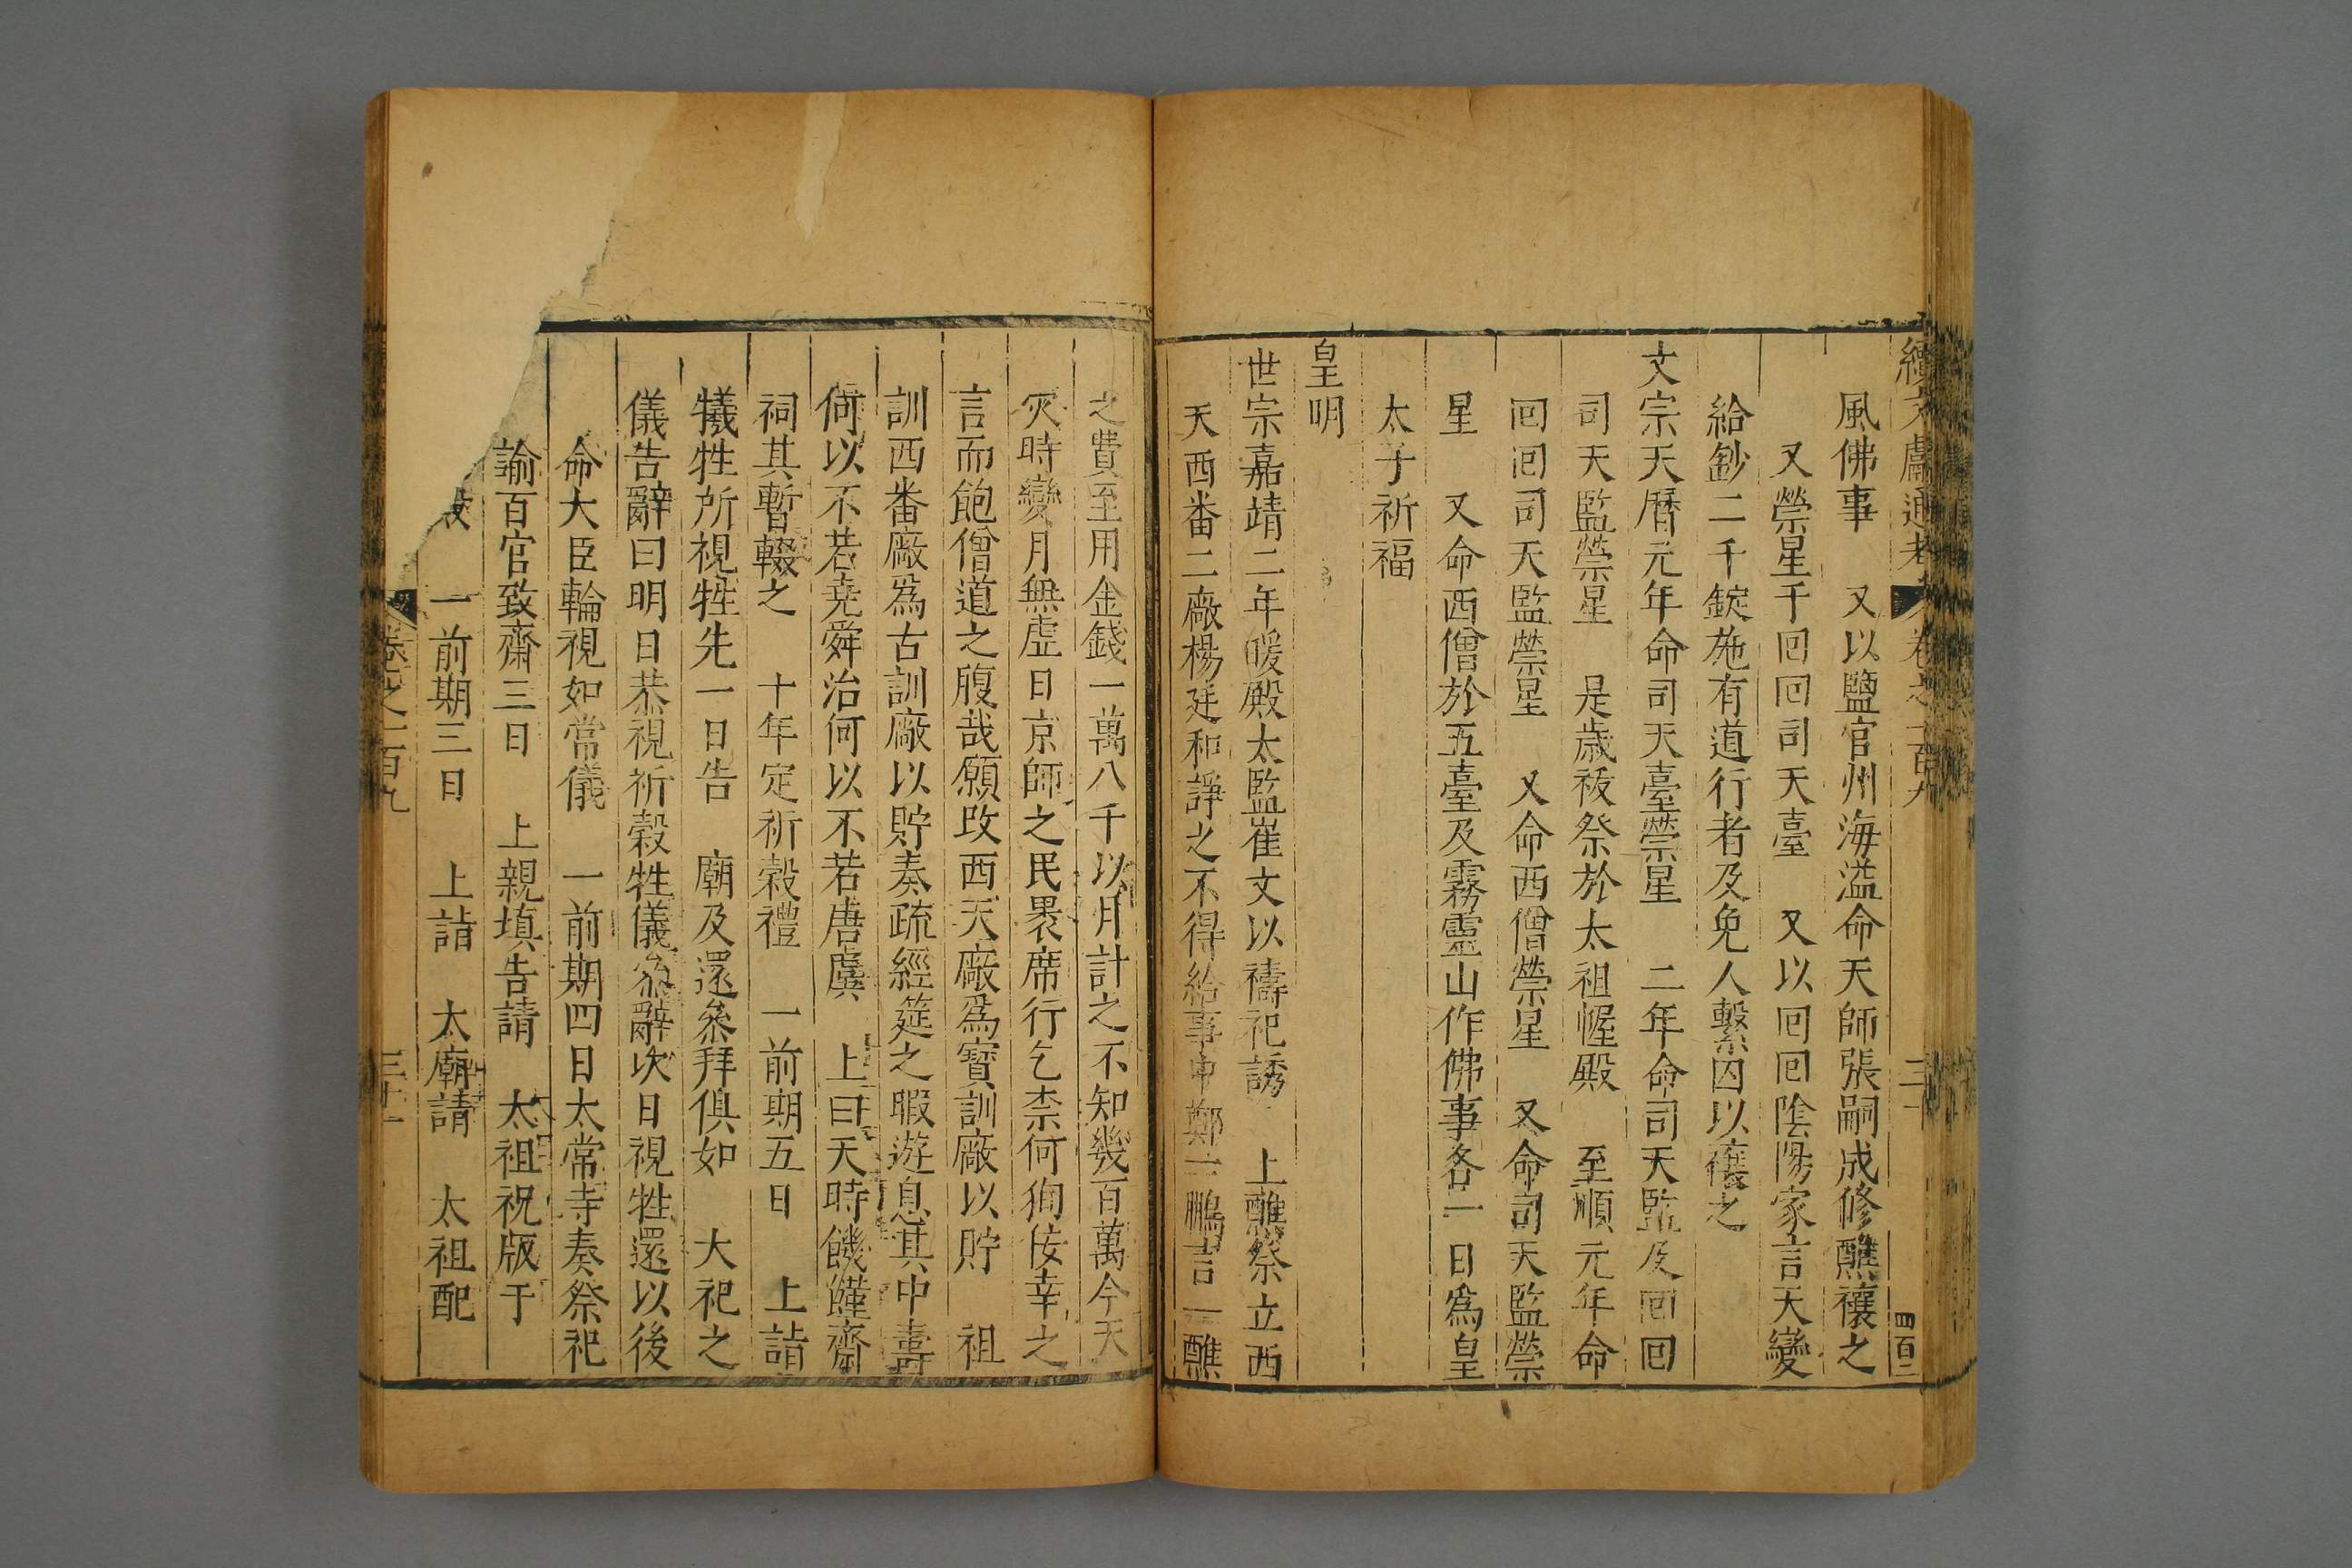 續文獻通考 卷之一百九 三十 四百二
風佛事 又以鹽官州海溢命天師張嗣成修醮禳之
又禜星于回回司天臺 又以回回陰陽家言天變
給鈔二千錠施有道行者及免人繫囚以禳之
文宗天曆元年命司天臺禜星 二年命司天監及回回
司天監禜星 是歲祓祭於太祖幄殿 至順元年命
回回司天監禜星 又命西僧禜星 又命司天監禜
星 又命西僧於五臺及霧靈山作佛事各一日爲皇
太子祈福
皇明
世宗嘉靖二年暖殿太監崔文以禱祀誘 上醮祭立西
天西番二廠楊廷和諍之不得給事中鄭一鵬言一醮
之費至用金錢一萬八千以月計之不知幾百萬今天
灾時變月無虛日京師之民褁席行乞柰何狥佞幸之
言而飽僧道之腹哉願改西天廠爲寶訓廠以貯 祖
訓西番廠爲古訓廠以貯奏疏經筵之暇遊息其中壽
何以不若堯舜治何以不若唐虞 上曰天時饑饉齋
祠其暫輟之 十年定祈穀禮 一前期五日 上詣
犧牲所視牲先一日告 廟及還叅拜俱如 大祀之
儀告辭曰明日恭視祈穀牲儀叅辭次日視牲還以後
命大臣輪視如常儀 一前期四日太常寺奏祭祀
諭百官致齋三日 上親填告請 太祖祝版于
一前期三日 上詣 太廟請 太祖配
卷之一百九 三十一